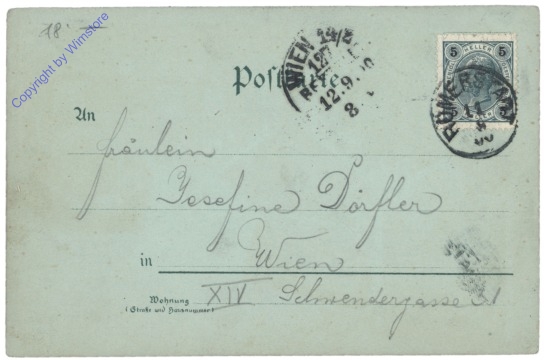 18
Copyright by Wimstore
WIEN
12.9.00
8
5 HELLER 5
RÖMERSTADT
11
9
00
An
Fräulein
Josefine Dörfler
in Wien
Wohnung
(Straße und Hausnummer)
XIV Schwendergasse